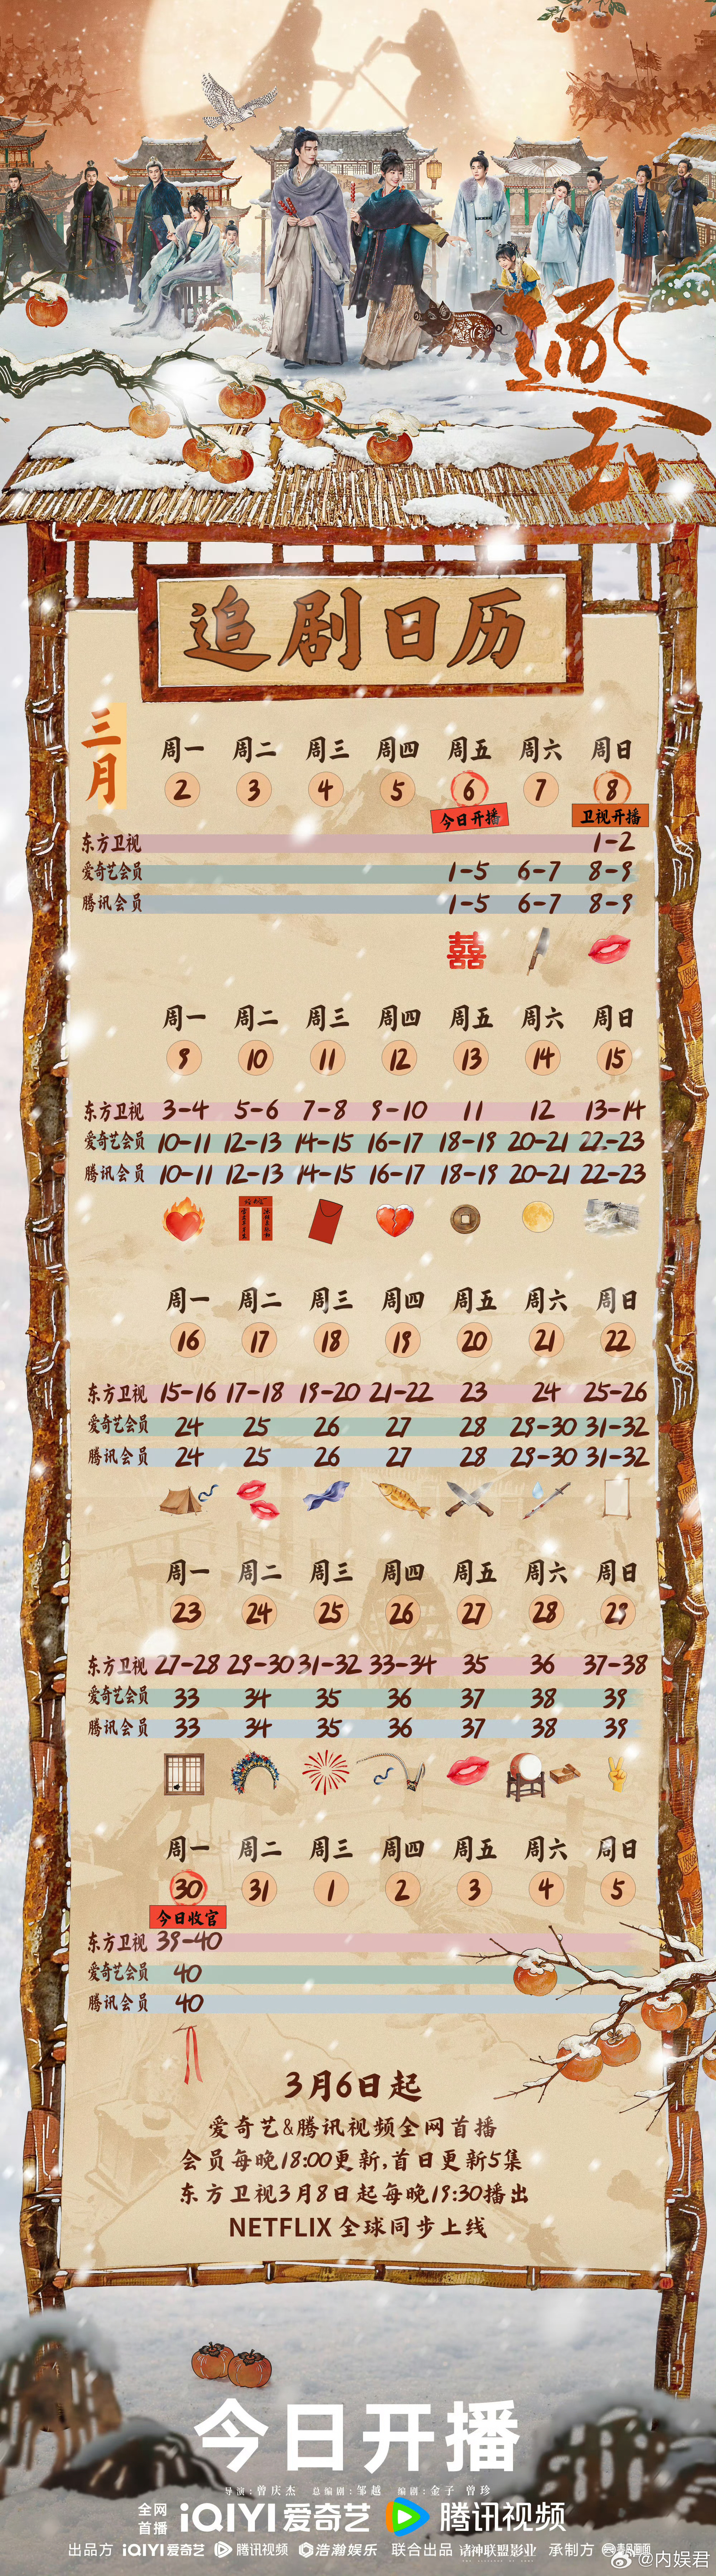 逐玉
追剧日历
三月
周一 周二 周三 周四 周五 周六 周日
2 3 4 5 6 7 8
今日开播 卫视开播
东方卫视 1-2
爱奇艺会员 1-5 6-7 8-9
腾讯会员 1-5 6-7 8-9
囍
周一 周二 周三 周四 周五 周六 周日
9 10 11 12 13 14 15
东方卫视 3-4 5-6 7-8 9-10 11 12 13-14
爱奇艺会员 10-11 12-13 14-15 16-17 18-19 20-21 22-23
腾讯会员 10-11 12-13 14-15 16-17 18-19 20-21 22-23
周一 周二 周三 周四 周五 周六 周日
16 17 18 19 20 21 22
东方卫视 15-16 17-18 19-20 21-22 23 24 25-26
爱奇艺会员 24 25 26 27 28 29-30 31-32
腾讯会员 24 25 26 27 28 29-30 31-32
周一 周二 周三 周四 周五 周六 周日
23 24 25 26 27 28 29
东方卫视 27-28 29-30 31-32 33-34 35 36 37-38
爱奇艺会员 33 34 35 36 37 38 39
腾讯会员 33 34 35 36 37 38 39
周一 周二 周三 周四 周五 周六 周日
30 31 1 2 3 4 5
今日收官
东方卫视 39-40
爱奇艺会员 40
腾讯会员 40
3月6日起
爱奇艺&腾讯视频全网首播
会员每晚18:00更新,首日更新5集
东方卫视3月8日起每晚19:30播出
NETFLIX 全球同步上线
今日开播
导演:曾庆杰 总编剧:邹越 编剧:金子 曾珍
全网首播 iQIYI爱奇艺 腾讯视频
出品方 iQIYI爱奇艺 腾讯视频 浩瀚娱乐 联合出品 诸神联盟影业 承制方
@内娱君